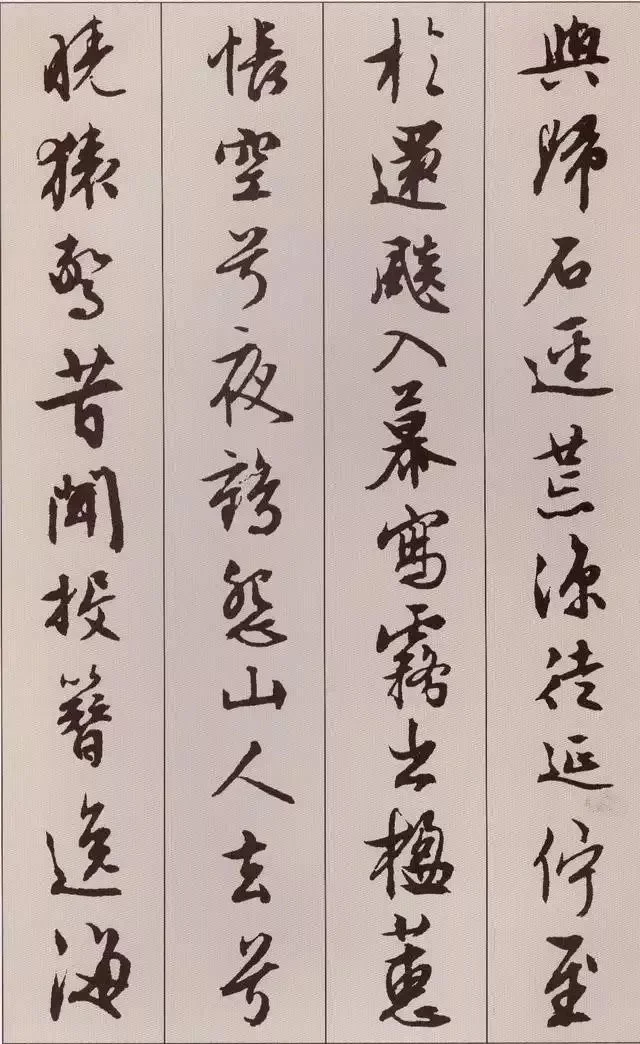 與歸石逕荒涼徒延佇至
於還飇入幕寫霧出楹蕙
悵空兮夜鶴怨山人去兮
曉猿驚昔聞投簪逸海